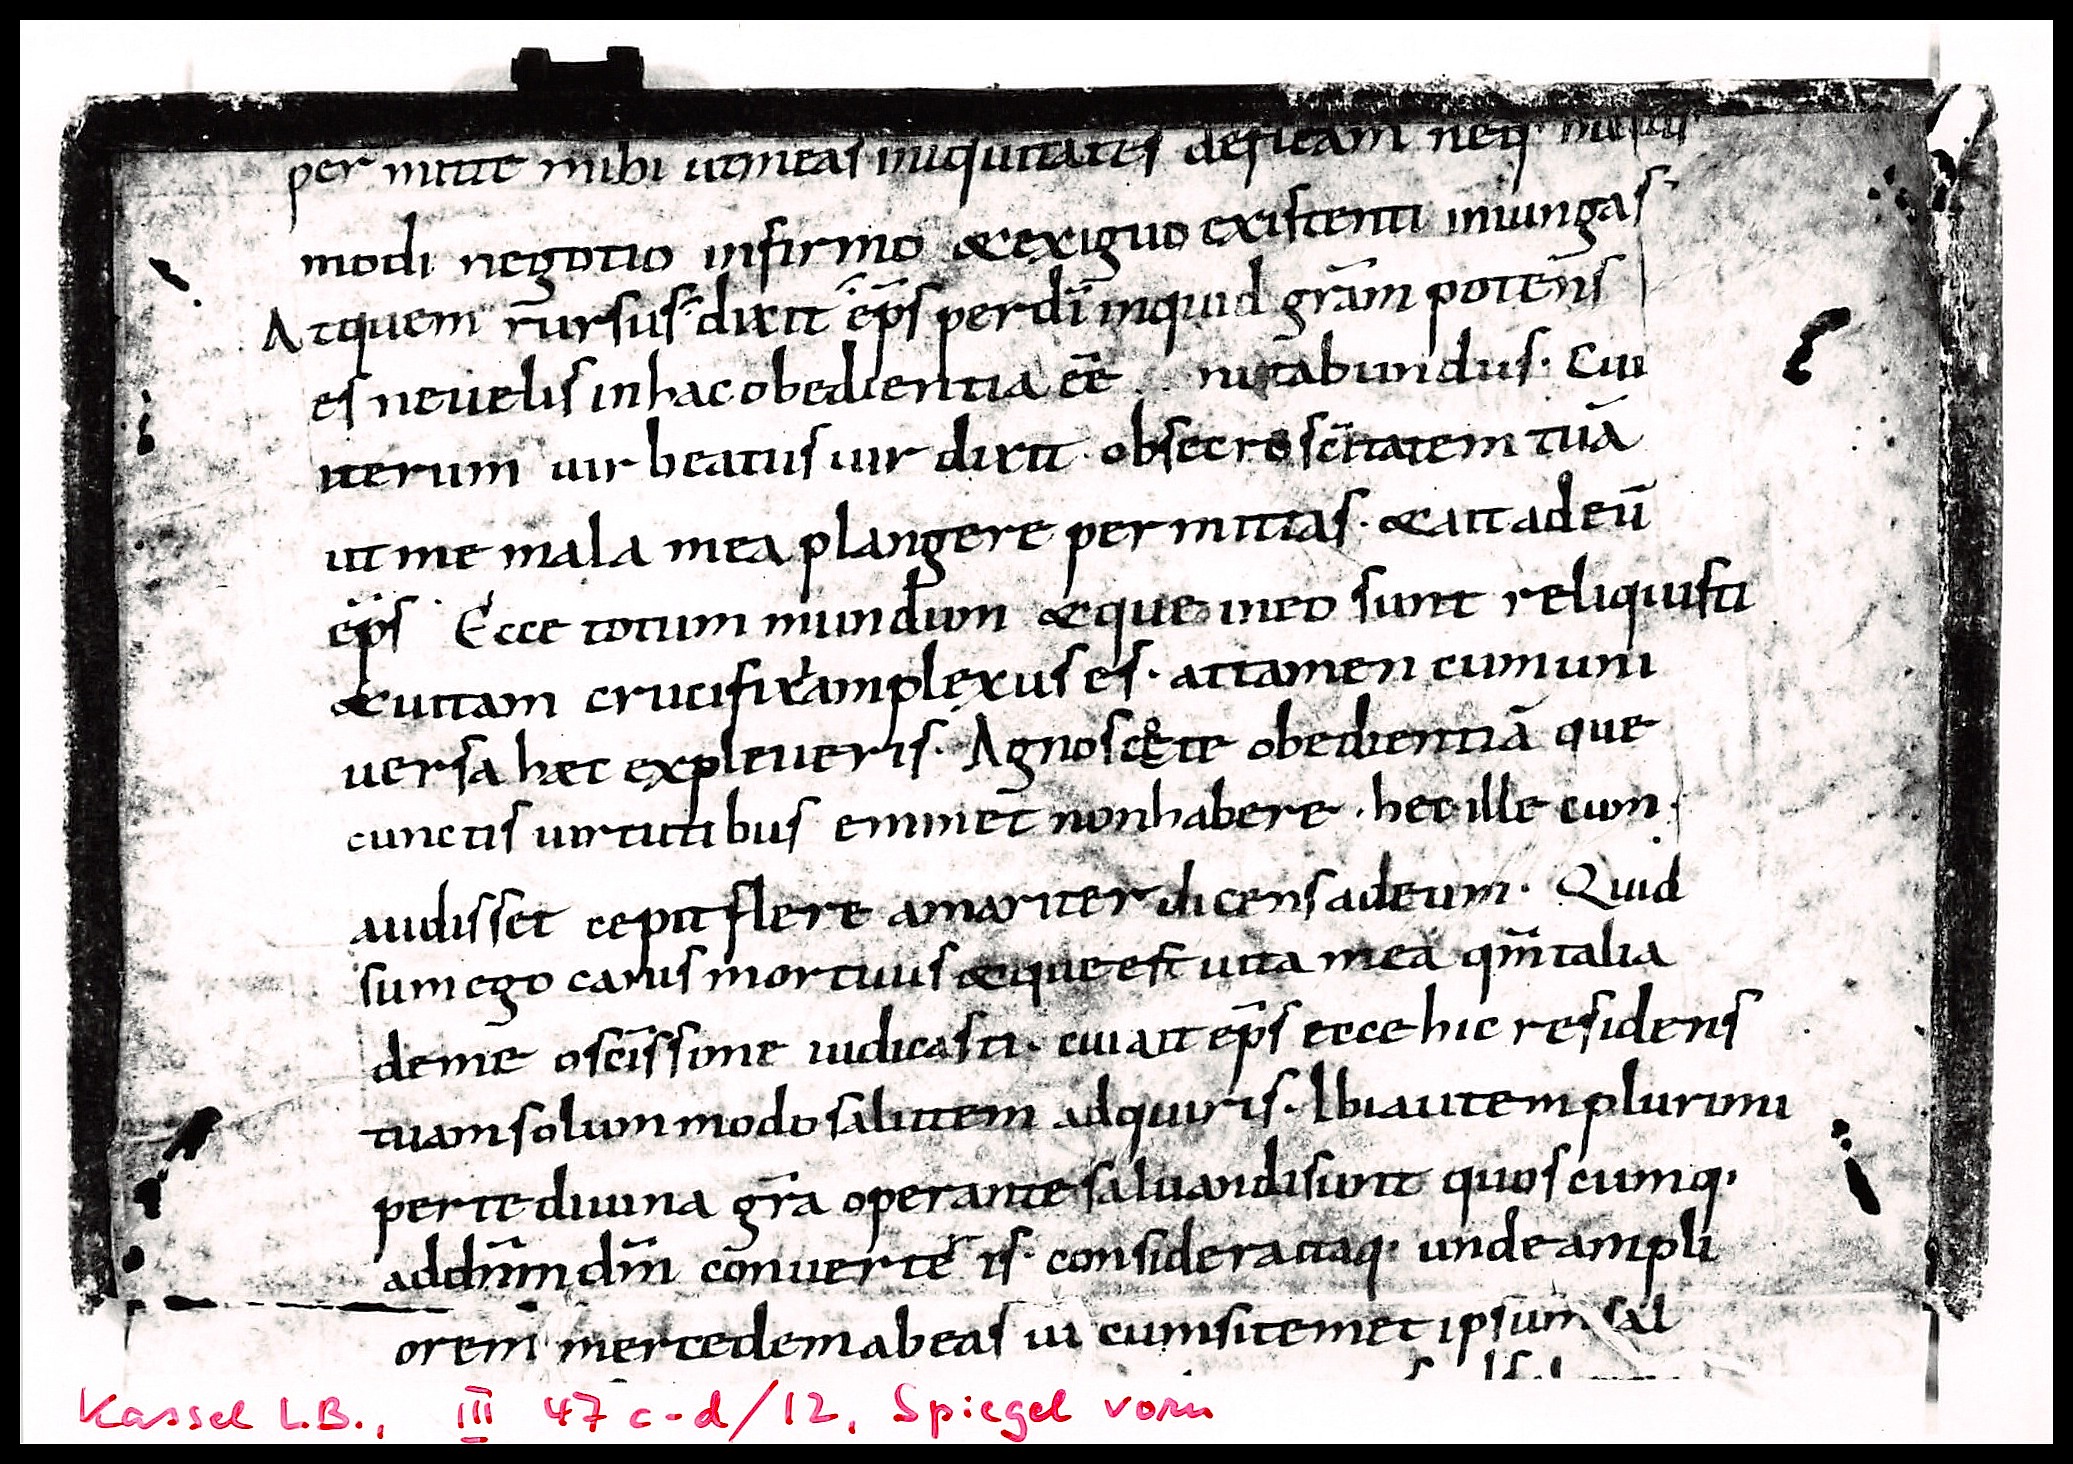 per mitte mihi ut meas iniquitates defleam neq;
modi negotio infirmo & exiguo existenti iniungas
Atquem rursus dixit ep̄s perdm̄ inquid gr̄am potens
es ne uelis in hac obedientia eē nutabundus. Cui
iterum uir beatus uir dixit. obsecro sc̄itatem tuā
ut me mala mea plangere permittas. & ait ad eū
ep̄s Ecce totum mundum & que in eo sunt reliquisti
& uitam crucifixi amplexus es. attamen cum uni
uersa hæc expleueris. Agnosce te obedientiā que
cunctis uirtutibus eminet non habere. hec ille cum.
audisset cepit flere amariter dicens ad eum. Quid
sum ego canis mortuus & que est uita mea qm̄ talia
de me o sc̄issime iudicasti. cui ait ep̄s ecce hic residens
tuam solummodo salutem adquiris. Ibi autem plurimi
per te diuina gr̄a operante saluandi sunt quoscumq;
ad dn̄m dm̄ conuerte ris. consideraitaq; unde ampli
orem mercedem abeas ui cum si temet ipsum sal
Kassel L.B., III 47 c-d/12, Spiegel vorn